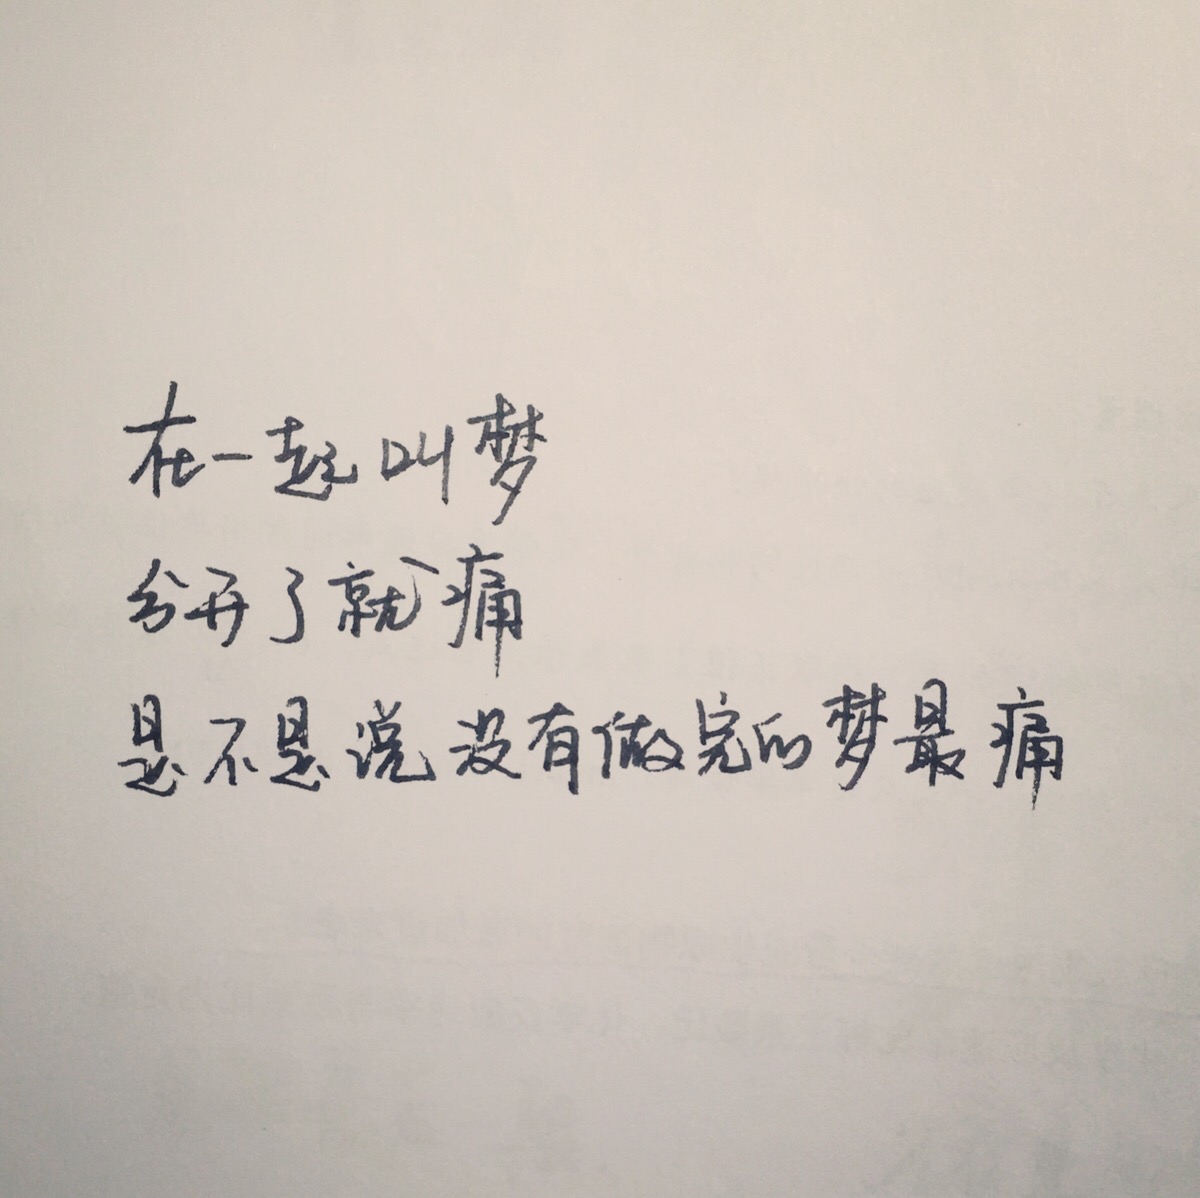 在一起叫梦
分开了就痛
是不是说没有做完的梦最痛